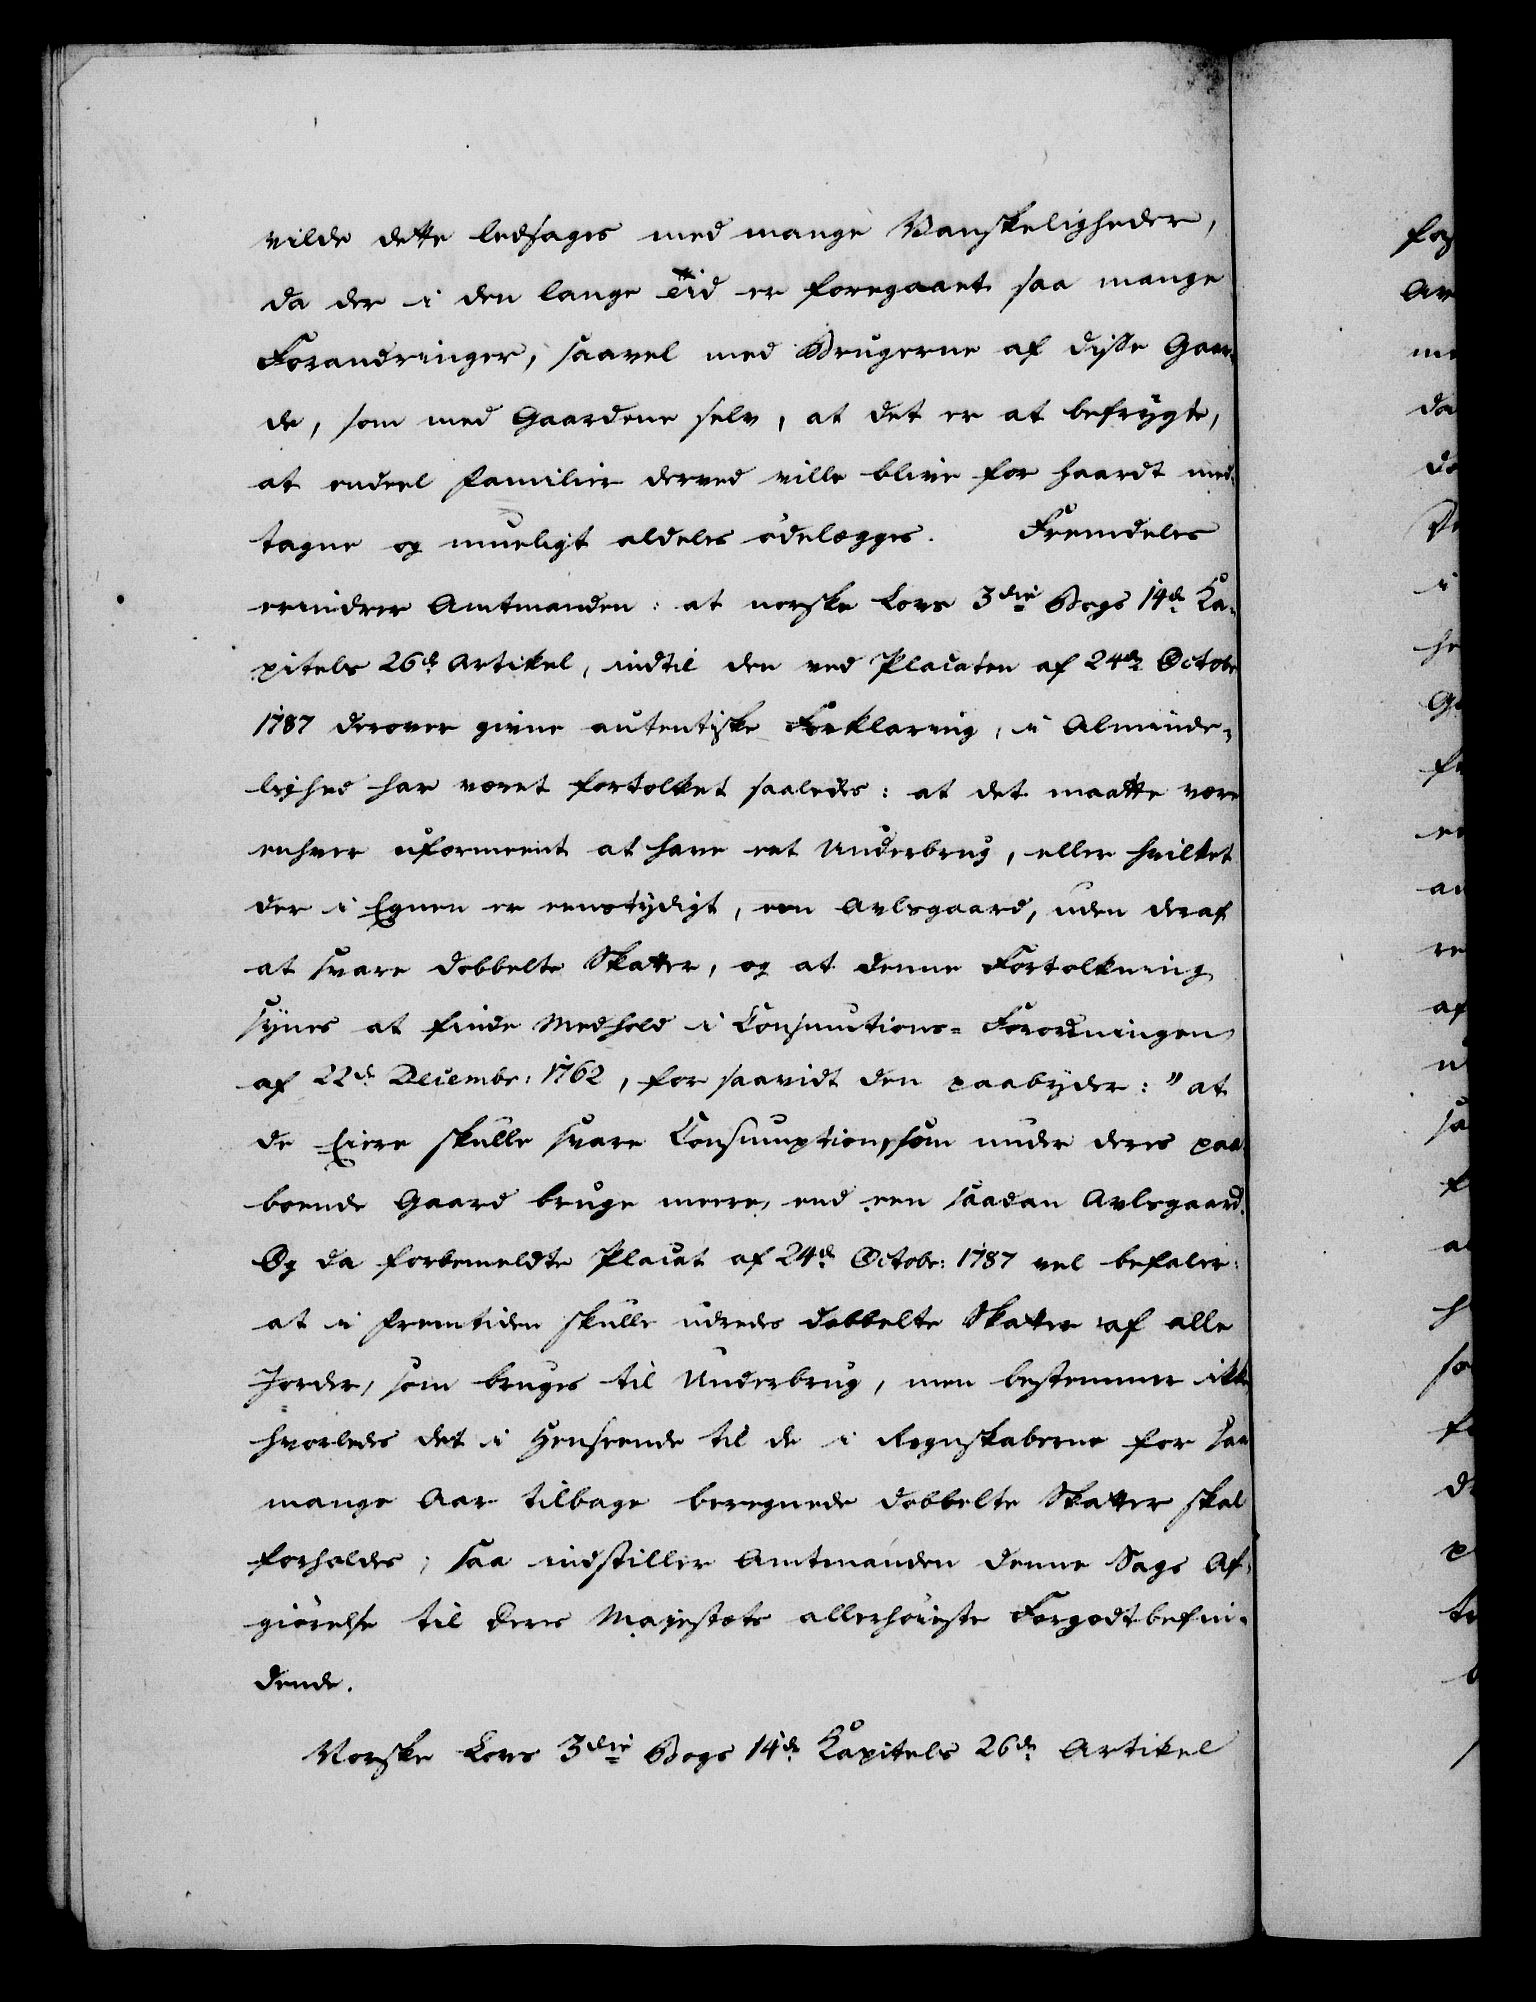 vilde dette ledsages med mange Vanskeligheder,
da der i den lange Tid er foregaaet saa mange
Forandringer, saavel med Brugerne af disse Gaar-
de, som med Gaardene selv, at det er at befrygte,
at endeel Familier derved ville blive for haardt med-
tagne og mueligt aldeles ödelægges. Fremdeles
erindrer Amtmanden: at norske Lovs 3die Bogs 14de Ka-
pitels 26de Artikel, indtil den ved Placaten af 24de Octobr
1787 derover givne autentiske Forklaring, i Alminde-
lighed har været fortolket saaledes: at det maatte være
enhver uformeent at have eet Underbrug, eller hvilket
der i Egnen er eenstydigt, een Avlsgaard, uden deraf
at svare dobbelte Skatter, og at denne Fortolkning
synes at finde Medhold i Consumtions-Forordningen
af 22de Decembr: 1762, for saavidt den paabyder: "at
de Eiere skulle svare Consumption, som under deres paa-
boende Gaard bruge meere, end een saadan Avlsgaard.
Og da forbemeldte Placat af 24de Octobr: 1787 vel befaler:
at i Fremtiden skulle udredes dobbelte Skatter af alle
Jorder, som bruges til Underbrug, men bestemmer ikke
hvorledes det i Henseende til de i Regnskaberne for saa
mange Aar tilbage beregnede dobbelte Skatter skal
forholdes; saa indstiller Amtmanden denne Sags Af-
giörelse til Deres Majestæts allerhöieste Forgodtbefin-
dende.
Norske Lovs 3die Bogs 14de Kapitels 26de Artikel